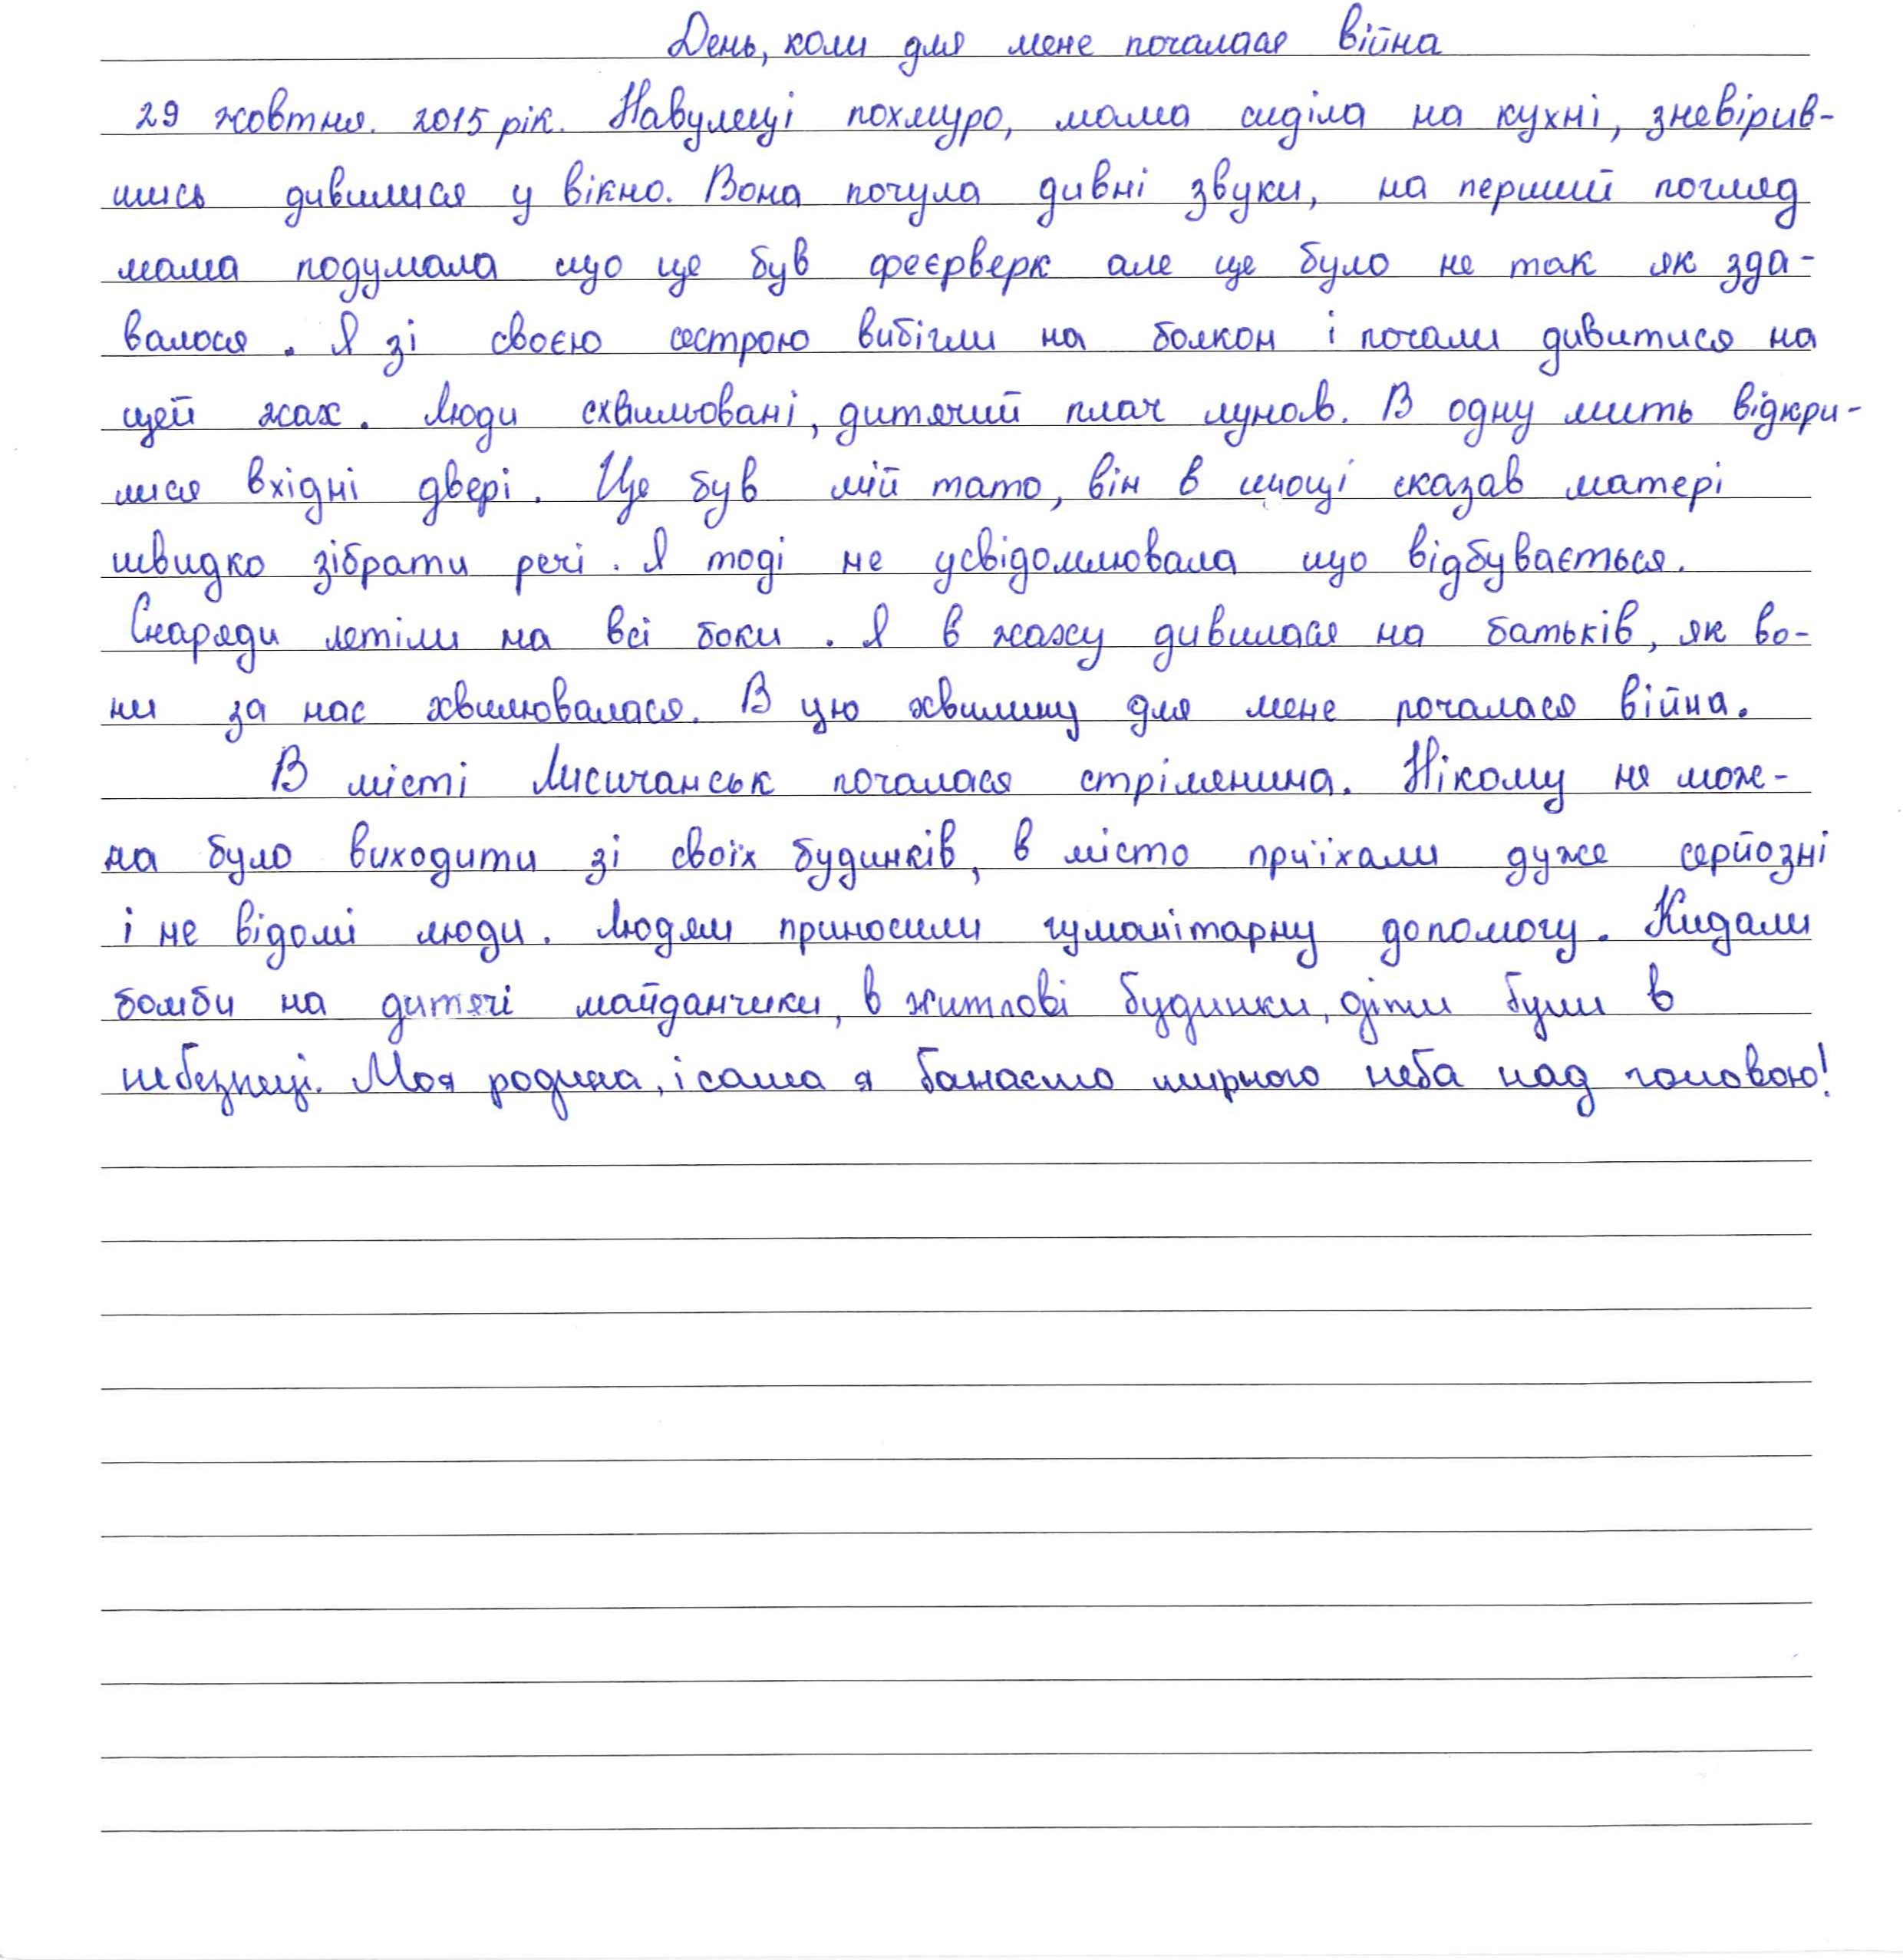 День, коли для мене почалася війна
29 жовтня. 2015 рік. Навулиці похмуро, мама сиділа на кухні, зневірив-
шись дивилися у вікно. Вона почула дивні звуки, на перший погляд
мама подумала що це був феєрверк але це було не так як зда-
валося. Я зі своєю сестрою вибігли на балкон і почали дивитися на
цей жах. Люди схвильовані, дитячий плач лунав. В одну мить відкри-
лися вхідні двері. Це був мій тато, він в сльозі сказав матері
швидко зібрати речі. Я тоді не усвідомлювала що відбувається.
Снаряди летіли на всі боки. Я в жаху дивилася на батьків, як во-
ни за нас хвилювалася. В цю хвилину для мене почалася війна.
В місті Лисичанськ почалася стрілянина. Нікому не мож-
на було виходити зі своїх будинків, в місто приїхали дуже серйозні
і не відомі люди. Людям приносили гуманітарну допомогу. Кидали
бомби на дитячі майданчики, в житлові будинки, діти були в
небезпеці. Моя родина, і сама я бажаємо мирного неба над головою!